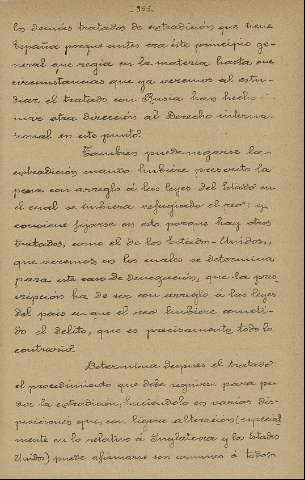 -353-
los demás tratados de extradición que tiene
España porque antes era éste principio ge-
neral que regía en la materia hasta que
circunstancias que ya veremos al estu-
diar el tratado con Rusia han hecho
otra dirección al Derecho interna-
cional en este punto.
También puede negarse la
extradición cuando hubiere prescrito la
pena con arreglo á las leyes del Estado en
el cual se hubiera refugiado el reo; y
conviene fijarse en esto porque hay otros
tratados, como el de los Estados-Unidos,
que veremos en los cuales se determina
para este caso de denegación, que la pres-
cripción ha de ser con arreglo á las leyes
del pais en que el reo hubiere cometi-
do el delito, que es precisamente todo lo
contrario.
Determina despues el tratado
el procedimiento que debe seguirse para pe-
dir la extradición, haciéndolo en varias dis-
posiciones que, con ligera alteración (especial
mente en lo relativo á Inglaterra y los Estados
Unidos) puede afirmarse son comunes á todos